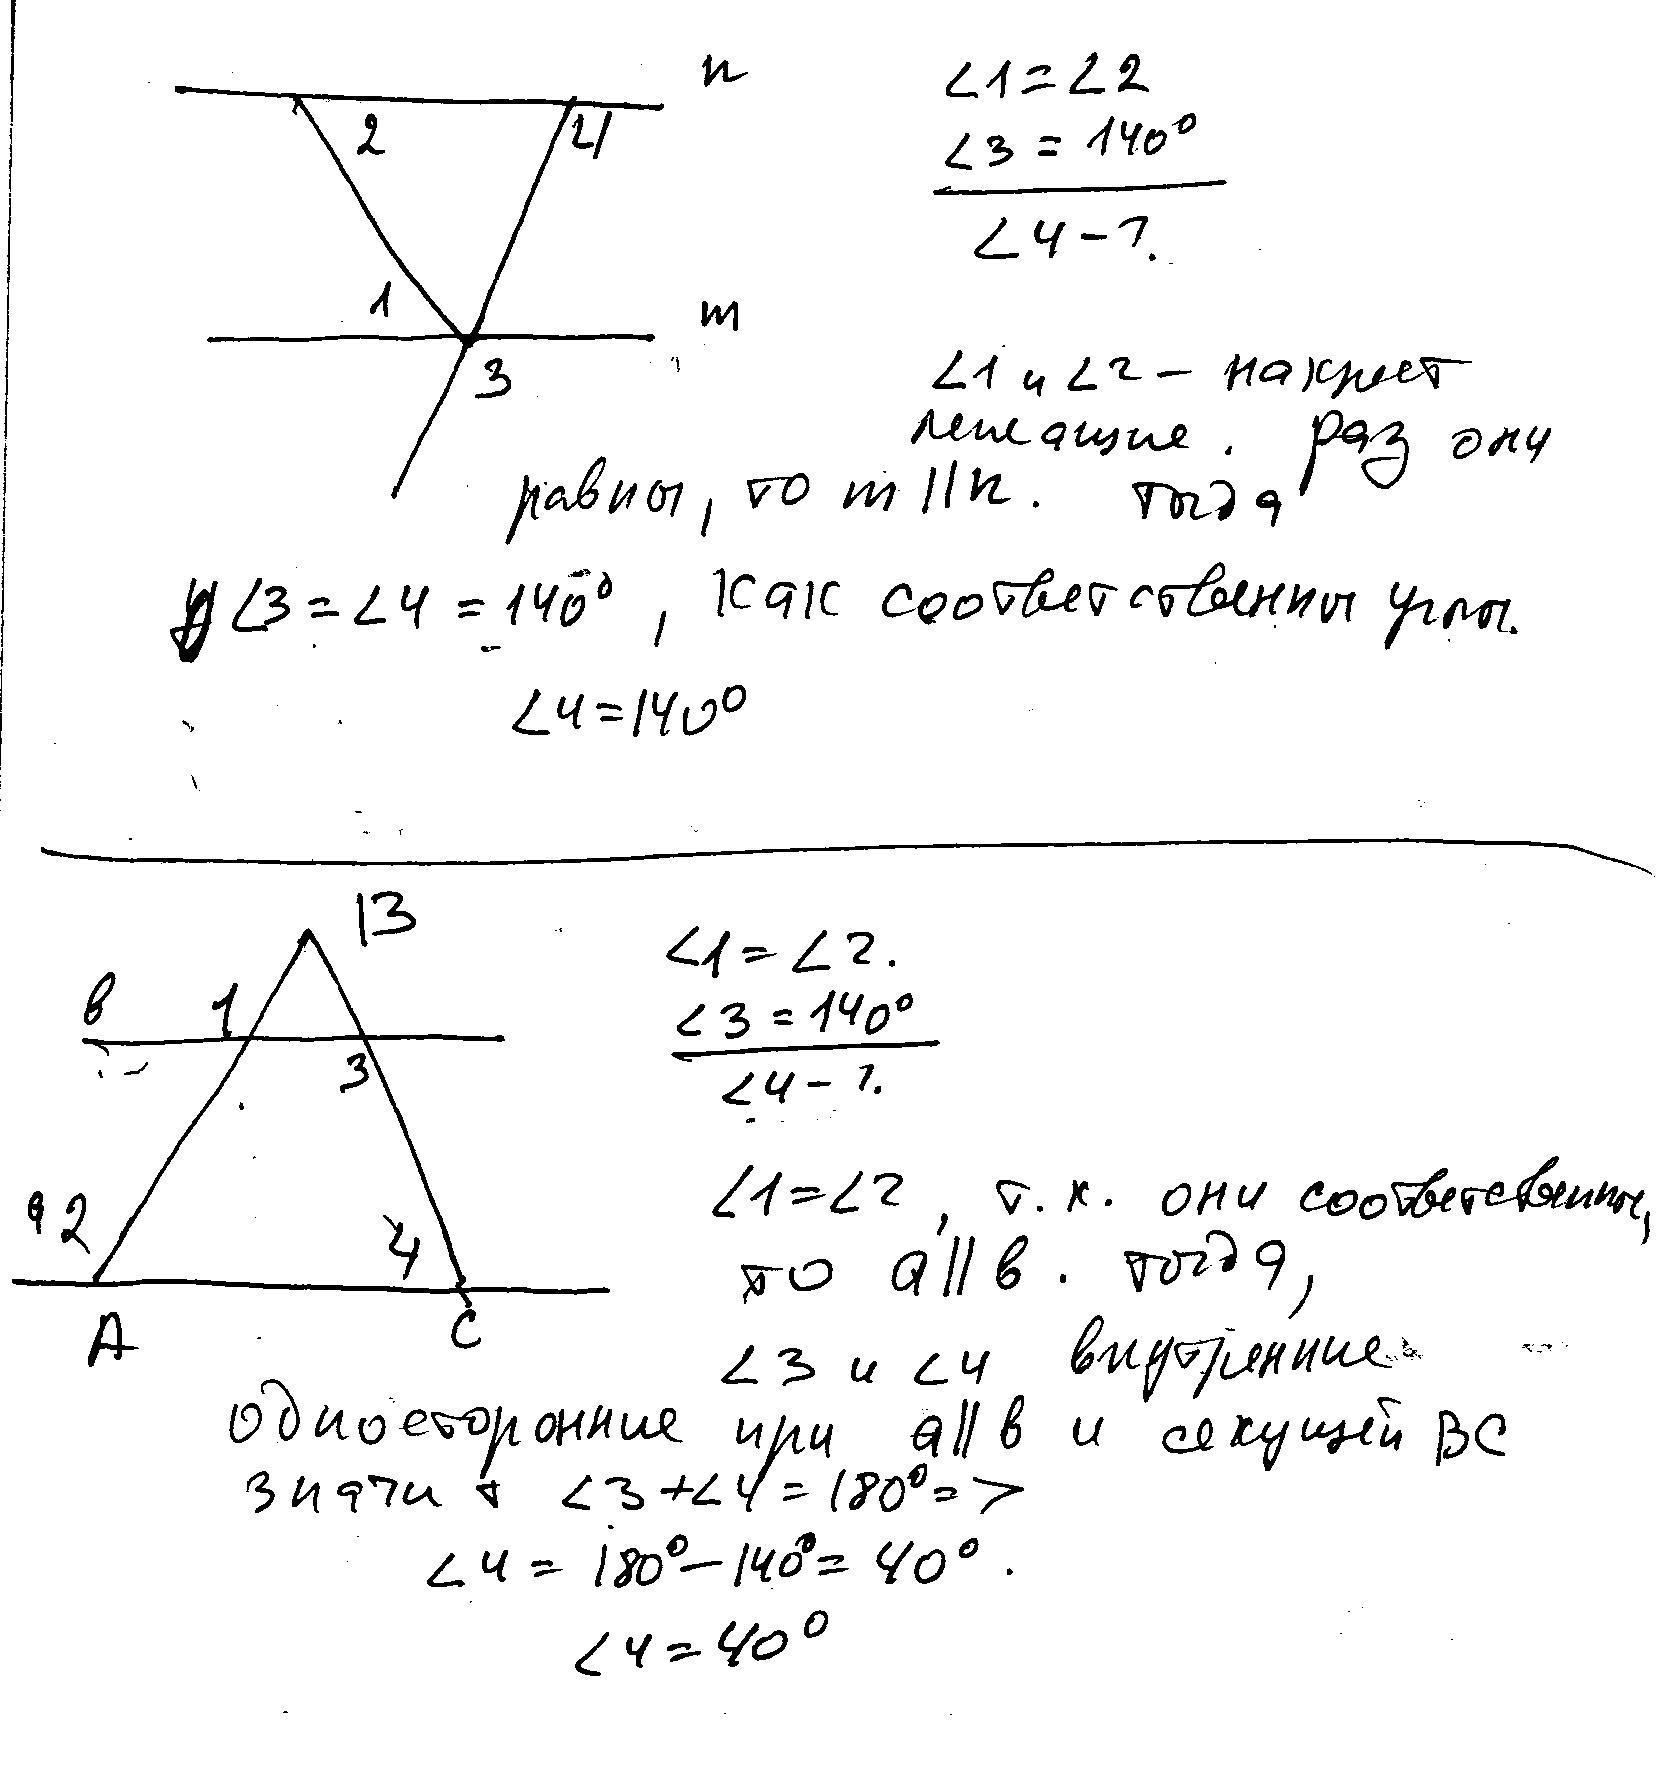 n
2
4
1
m
3
∠1 = ∠2
∠3 = 140°
∠4 - ?
∠1 и ∠2 - накрест
лежащие. раз они
равны, то m || n. тогда
∠3 = ∠4 = 140°, как соответственны углы.
∠4 = 140°
B
в
1
3
a
2
4
A
C
∠1 = ∠2.
∠3 = 140°
∠4 - ?
∠1 = ∠2, т.к. они соответственны,
то a || в. тогда,
∠3 и ∠4 внутренние
односторонние при a || в и секущей BC
значит ∠3 + ∠4 = 180° =>
∠4 = 180° - 140° = 40°.
∠4 = 40°